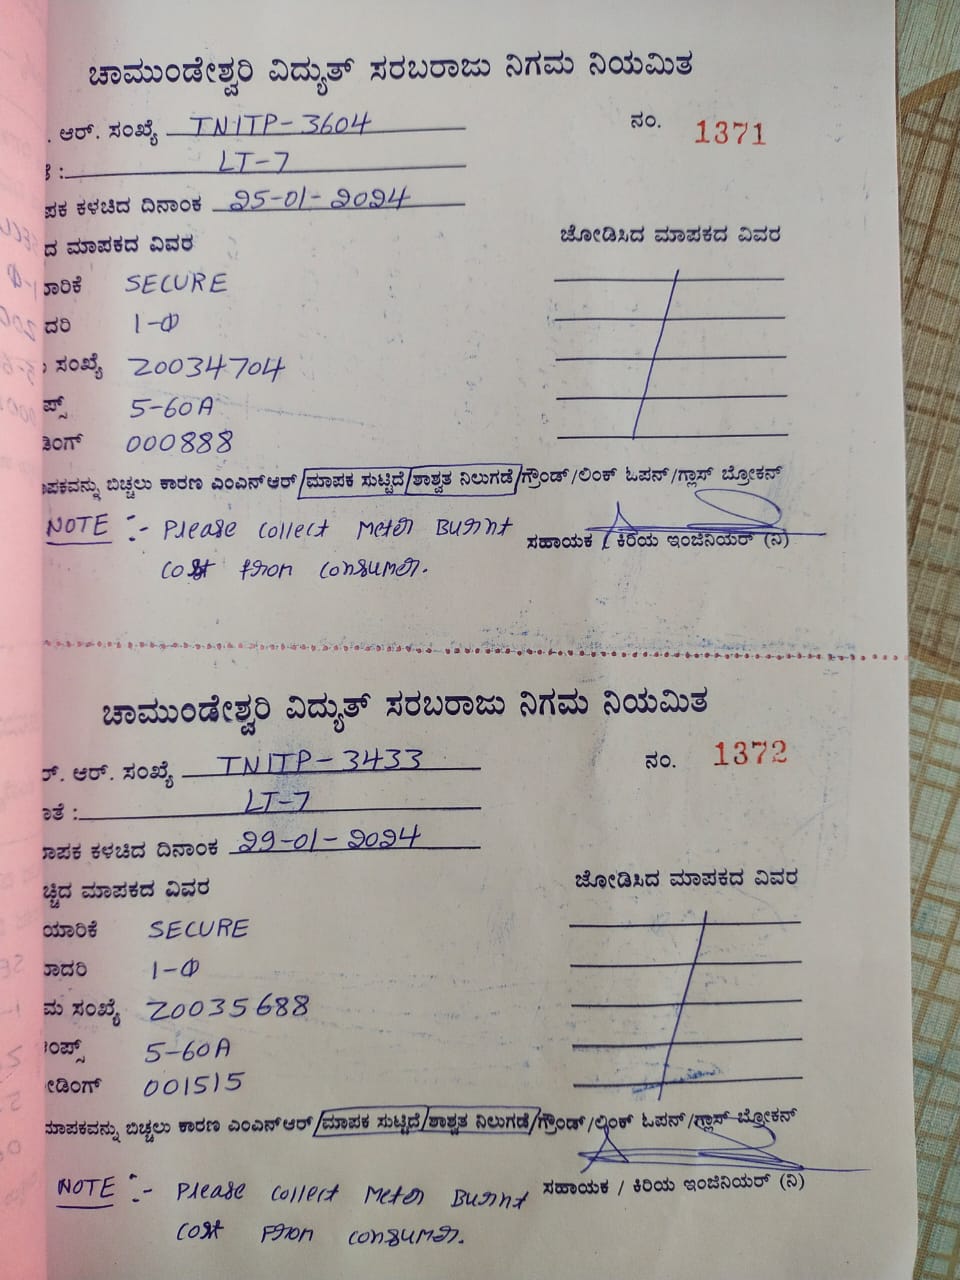 ಚಾಮುಂಡೇಶ್ವರಿ ವಿದ್ಯುತ್ ಸರಬರಾಜು ನಿಗಮ ನಿಯಮಿತ
. ಆರ್. ಸಂಖ್ಯೆ TNITP-3604
ನಂ. 1371
: LT-7
ಪಕ ಕಳಚಿದ ದಿನಾಂಕ 25-01-2024
ದ ಮಾಪಕದ ವಿವರ
ಜೋಡಿಸಿದ ಮಾಪಕದ ವಿವರ
ಾರಿಕೆ SECURE
ದರಿ 1-Φ
ಸಂಖ್ಯೆ 20034704
ಪ್ಸ್ 5-60A
ಡಿಂಗ್ 000888
ಾಪಕವನ್ನು ಬಿಚ್ಚಲು ಕಾರಣ ಎಂಎನ್ಆರ್/ಮಾಪಕ ಸುಟ್ಟಿದೆ/ಶಾಶ್ವತ ನಿಲುಗಡೆ/ಗ್ರೌಂಡ್/ಲಿಂಕ್ ಓಪನ್/ಗ್ಲಾಸ್ ಬ್ರೋಕನ್
NOTE :- Please collect Meter Burnt
cost from consumer.
ಸಹಾಯಕ / ಕಿರಿಯ ಇಂಜಿನಿಯರ್ (ನಿ)
ಚಾಮುಂಡೇಶ್ವರಿ ವಿದ್ಯುತ್ ಸರಬರಾಜು ನಿಗಮ ನಿಯಮಿತ
ರ್. ಆರ್. ಸಂಖ್ಯೆ TNITP-3433
ನಂ. 1372
ಾತೆ : LT-7
ಾಪಕ ಕಳಚಿದ ದಿನಾಂಕ 29-01-2024
ಚ್ಚಿದ ಮಾಪಕದ ವಿವರ
ಜೋಡಿಸಿದ ಮಾಪಕದ ವಿವರ
ಯಾರಿಕೆ SECURE
ಾದರಿ 1-Φ
ಮ ಸಂಖ್ಯೆ 20035688
ಂಪ್ಸ್ 5-60A
ೀಡಿಂಗ್ 001515
ಮಾಪಕವನ್ನು ಬಿಚ್ಚಲು ಕಾರಣ ಎಂಎನ್ಆರ್/ಮಾಪಕ ಸುಟ್ಟಿದೆ/ಶಾಶ್ವತ ನಿಲುಗಡೆ/ಗ್ರೌಂಡ್/ಲಿಂಕ್ ಓಪನ್/ಗ್ಲಾಸ್ ಬ್ರೋಕನ್
NOTE :- Please collect Meter Burnt
cost From consumer.
ಸಹಾಯಕ / ಕಿರಿಯ ಇಂಜಿನಿಯರ್ (ನಿ)